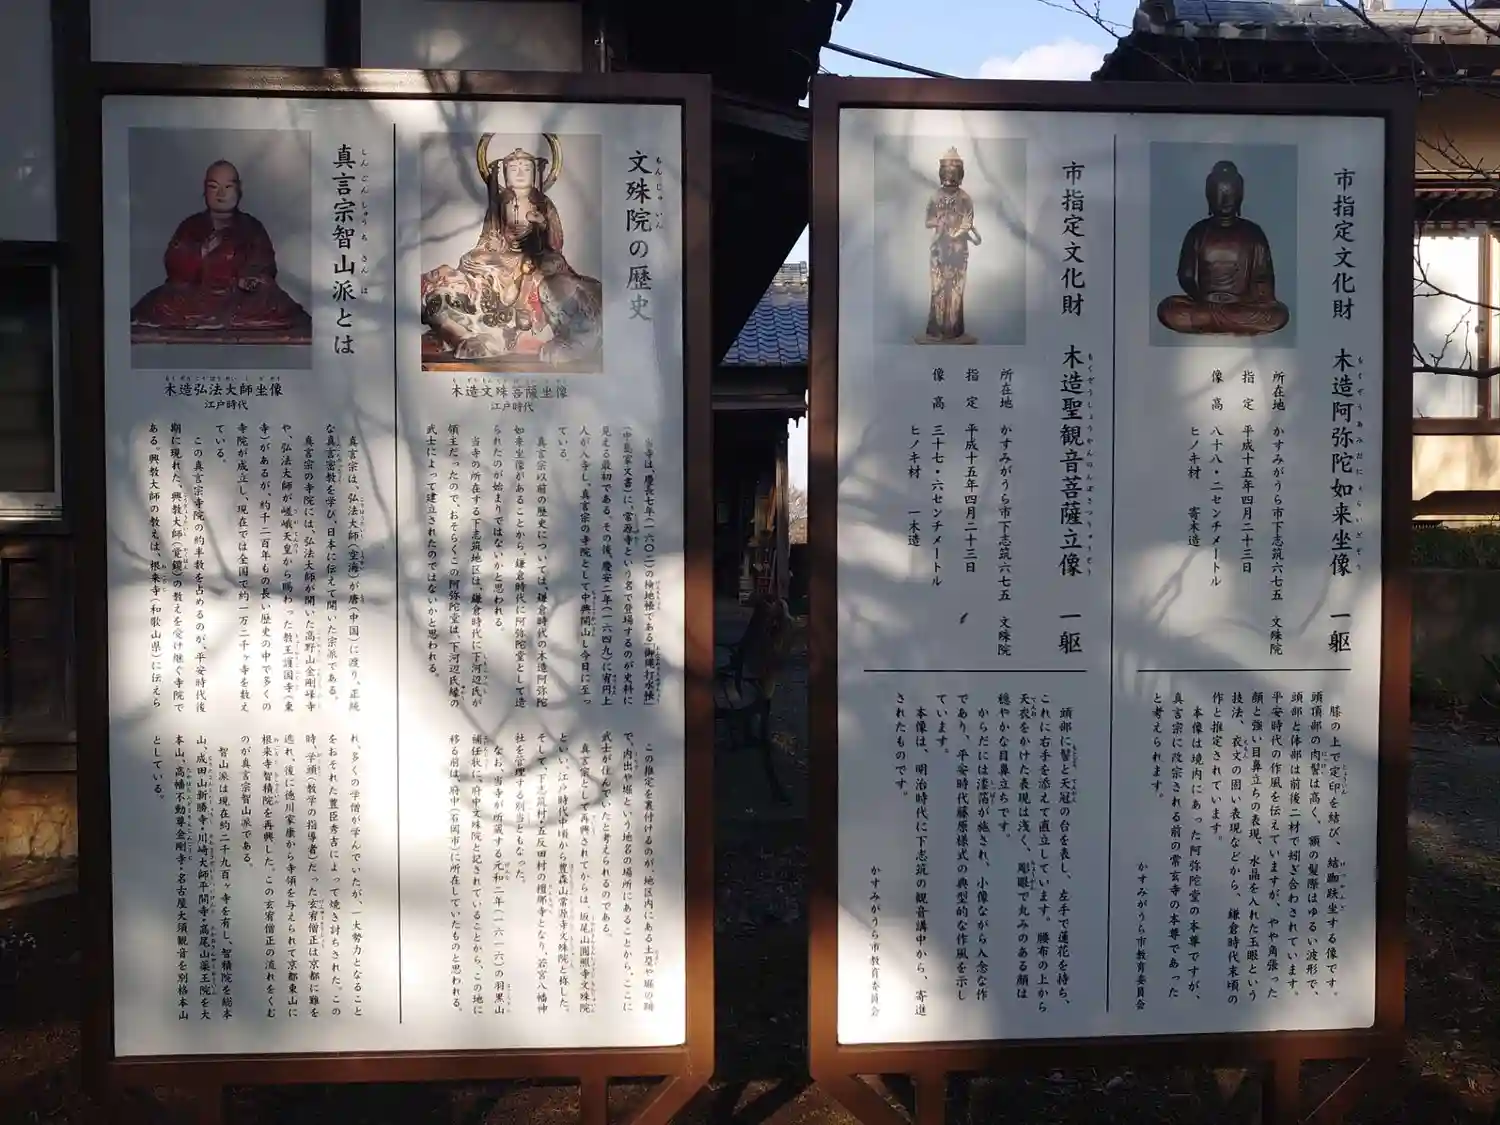 市指定文化財　木造阿弥陀如来坐像　一躯
所在地　かすみがうら市下志筑六七五　文殊院
指　定　平成十五年四月二十三日
像　高　八十八・二センチメートル
ヒノキ材　寄木造
膝の上で定印を結び、結跏趺坐する像です。
頭頂部の肉髻は高く、額の髪際はゆるい波形で、
頭部と体部は前後二材で矧ぎ合わされています。
平安時代の作風を伝えていますが、やや角張った
顔と強い目鼻立ちの表現、水晶を入れた玉眼という
技法、衣文の固い表現などから、鎌倉時代末頃の
作と推定されています。
本像は境内にあった阿弥陀堂の本尊ですが、
真言宗に改宗される前の常玄寺の本尊であった
と考えられます。
かすみがうら市教育委員会
市指定文化財　木造聖観音菩薩立像　一躯
所在地　かすみがうら市下志筑六七五　文殊院
指　定　平成十五年四月二十三日
像　高　三十七・六センチメートル
ヒノキ材　一木造
頭部に髻と天冠の台を表し、左手で蓮花を持ち、
これに右手を添えて直立しています。腰布の上から
天衣をかけた表現は浅く、彫眼で丸みのある顔は
穏やかな目鼻立ちです。
からだには漆箔が施され、小像ながら入念な作
であり、平安時代藤原様式の典型的な作風を示し
ています。
本像は、明治時代に下志筑の観音講中から、寄進
されたものです。
かすみがうら市教育委員会
文殊院の歴史
もんじゅいん
木造文殊菩薩坐像
江戸時代
当寺は、慶長七年（一六〇二）の検地帳である「御縄打水帳」
（中島家文書）に、常源寺という名で登場するのが史料に
見える最初である。その後、慶安二年（一六四九）に宥円上
人が入寺し、真言宗の寺院として中興開山し今日に至っ
ている。
真言宗以前の歴史については、鎌倉時代の木造阿弥陀
如来坐像があることから、鎌倉時代に阿弥陀堂として造
られたのが始まりではないかと思われる。
当寺の所在する下志筑地区は、鎌倉時代に下河辺氏が
領主だったので、おそらくこの阿弥陀堂は、下河辺氏縁の
武士によって建立されたのではないかと思われる。
この推定を裏付けるのが、地区内にある土塁や堀の跡
で、内出や堀という地名の場所にあることから、ここに
武士が住んでいたと考えられるのである。
真言宗として再興されてからは、坂尾山圓照寺文殊院
といい、江戸時代中頃から豊森山常源寺文殊院と称した。
そして、下志筑村・五反田村の檀那寺となり、若宮八幡神
社を管理する別当ともなった。
なお、当寺が所蔵する元和二年（一六一六）の羽黒山
補任状に「府中文殊院」と記されていることから、この地に
移る前は、府中（石岡市）に所在していたものと思われる。
真言宗智山派とは
しんごんしゅうちさんは
木造弘法大師坐像
江戸時代
真言宗は、弘法大師（空海）が唐（中国）に渡り、正統
な真言密教を学び、日本に伝えて開いた宗派である。
真言宗の寺院には、弘法大師が開いた高野山金剛峰寺
や、弘法大師が嵯峨天皇から賜わった教王護国寺（東
寺）があるが、約千二百年もの長い歴史の中で多くの
寺院が成立し、現在では全国で約一万二千ヶ寺を数え
ている。
この真言宗寺院の約半数を占めるのが、平安時代後
期に現れた、興教大師（覚鑁）の教えを受け継ぐ寺院で
ある。興教大師の教えは、根来寺（和歌山県）に伝えら
れ、多くの学僧が学んでいたが、一大勢力となること
をおそれた豊臣秀吉によって焼き討ちされた。この
時、学頭（教学の指導者）だった玄宥僧正は京都に難を
逃れ、後に徳川家康から寺領を与えられて京都東山に
根来寺智積院を再興した。この玄宥僧正の流れをくむ
のが真言宗智山派である。
智山派は現在約二千九百ヶ寺を有し、智積院を総本
山、成田山新勝寺・川崎大師平間寺・高尾山薬王院を大
本山、高幡不動尊金剛寺・名古屋大須観音を別格本山
としている。